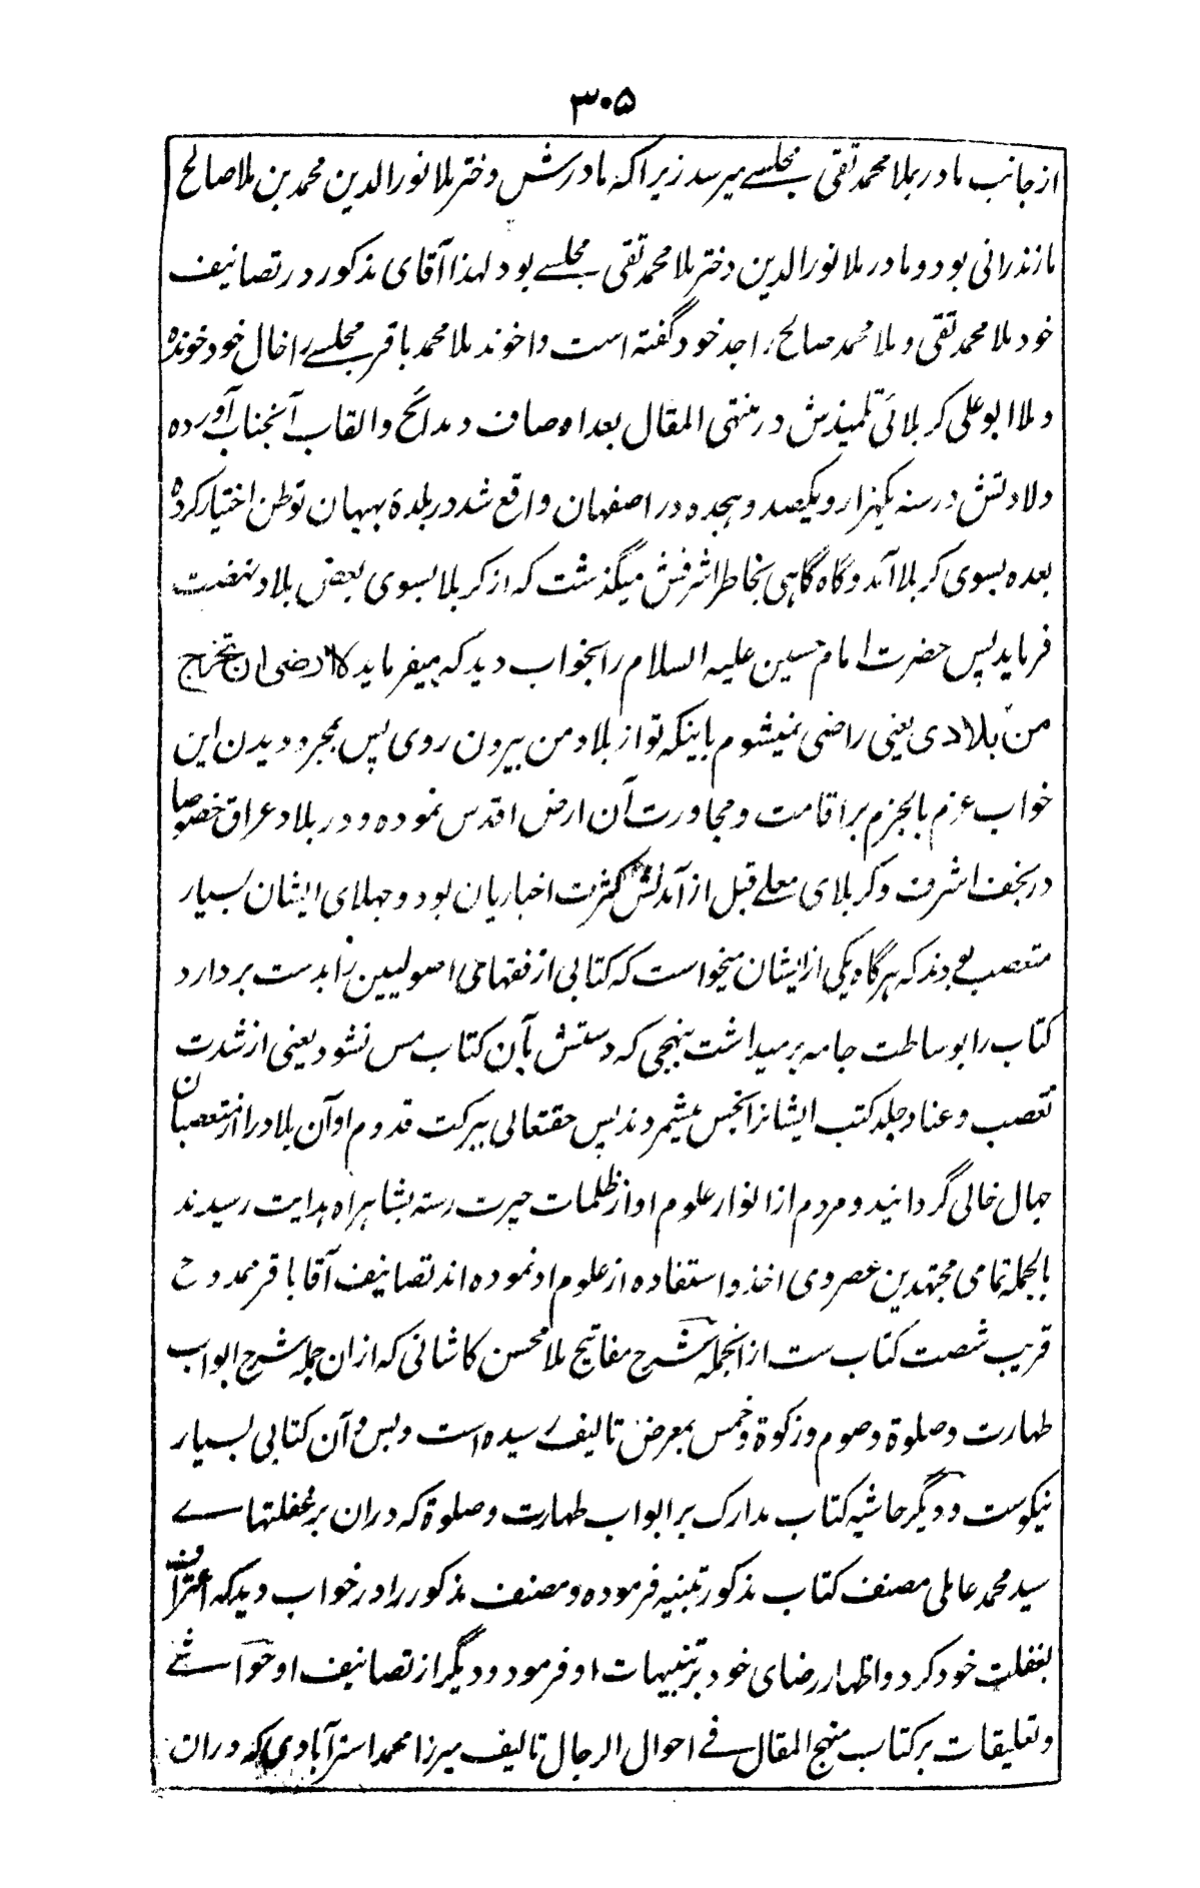 ۳۰۵
از جانب مادر بملا محمد تقی مجلسے میرسد زیرا کہ مادرش دختر ملا نورالدین محمد بن ملا صالح
مازندرانی بود و مادر ملا نورالدین دختر ملا محمد تقی مجلسے بود لہذا آقای مذکور در تصانیف
خود ملا محمد تقی و ملا محمد صالح را جد خود گفتہ است و اخوند ملا محمد باقر مجلسے را خال خود خوندہ
و ملا ابو علی کربلائی تلمیذش در منتہی المقال بعد اوصاف و مدائح و القاب آنجناب آوردہ
ولادتش در سنہ یکہزار و یکصد و ہجدہ در اصفہان واقع شد در بلدۂ بہبہان توطن اختیار کردہ
بعدہ بسوی کربلا آمد و گاہ گاہی بخاطر اشرفش میگذشت کہ از کربلا بسوی بعض بلاد نہضت
فرماید پس حضرت امام حسین علیہ السلام را بخواب دید کہ میفرماید لا ارضی ان تخرج
من بلادی یعنی راضی نمیشوم باینکہ تو از بلاد من بیرون روی پس بمجرد دیدن این
خواب عزم بالجزم بر اقامت و مجاورت آن ارض اقدس نمودہ و در بلاد عراق خصوصا
در نجف اشرف و کربلای معلے قبل از آمدنش کثرت اخباریان بود و جہلای ایشان بسیار
متعصب بودند کہ ہر گاہ یکی از ایشان میخواست کہ کتابی از فقہای اصولیین را بدست بردارد
کتاب را بوساطت جامہ برمیداشت بنہجی کہ دستش بآن کتاب مس نشود یعنی از شدت
تعصب و عناد جلد کتب ایشانرا نجس میشمردند پس حقتعالی ببرکت قدوم او آن بلاد را از متعصبان
جہال خالی گردانید و مردم از انوار علوم او از ظلمات حیرت رستہ بشاہراہ ہدایت رسیدند
بالجملہ تمامی مجتہدین عصر وی اخذ و استفادہ از علوم او نمودہ اند تصانیف آقا باقر ممدوح
قریب شصت کتاب ست از انجملہ شرح مفاتیح ملا محسن کاشانی کہ ازان جملہ شرح ابواب
طہارت و صلوۃ و صوم و زکوۃ و خمس بمعرض تالیف رسیدہ است و بس و آن کتابی بسیار
نیکوست و دیگر حاشیہ کتاب مدارک بر ابواب طہارت و صلوۃ کہ دران بر غفلتہاے
سید محمد عاملی مصنف کتاب مذکور تنبیہ فرمودہ و مصنف مذکور را در خواب دید کہ اعتراف
بغفلت خود کرد و اظہار رضای خود بر تنبیہات او فرمود و دیگر از تصانیف او حواشے
و تعلیقات بر کتاب منہج المقال فے احوال الرجال تالیف میرزا محمد استرآبادی کہ دران